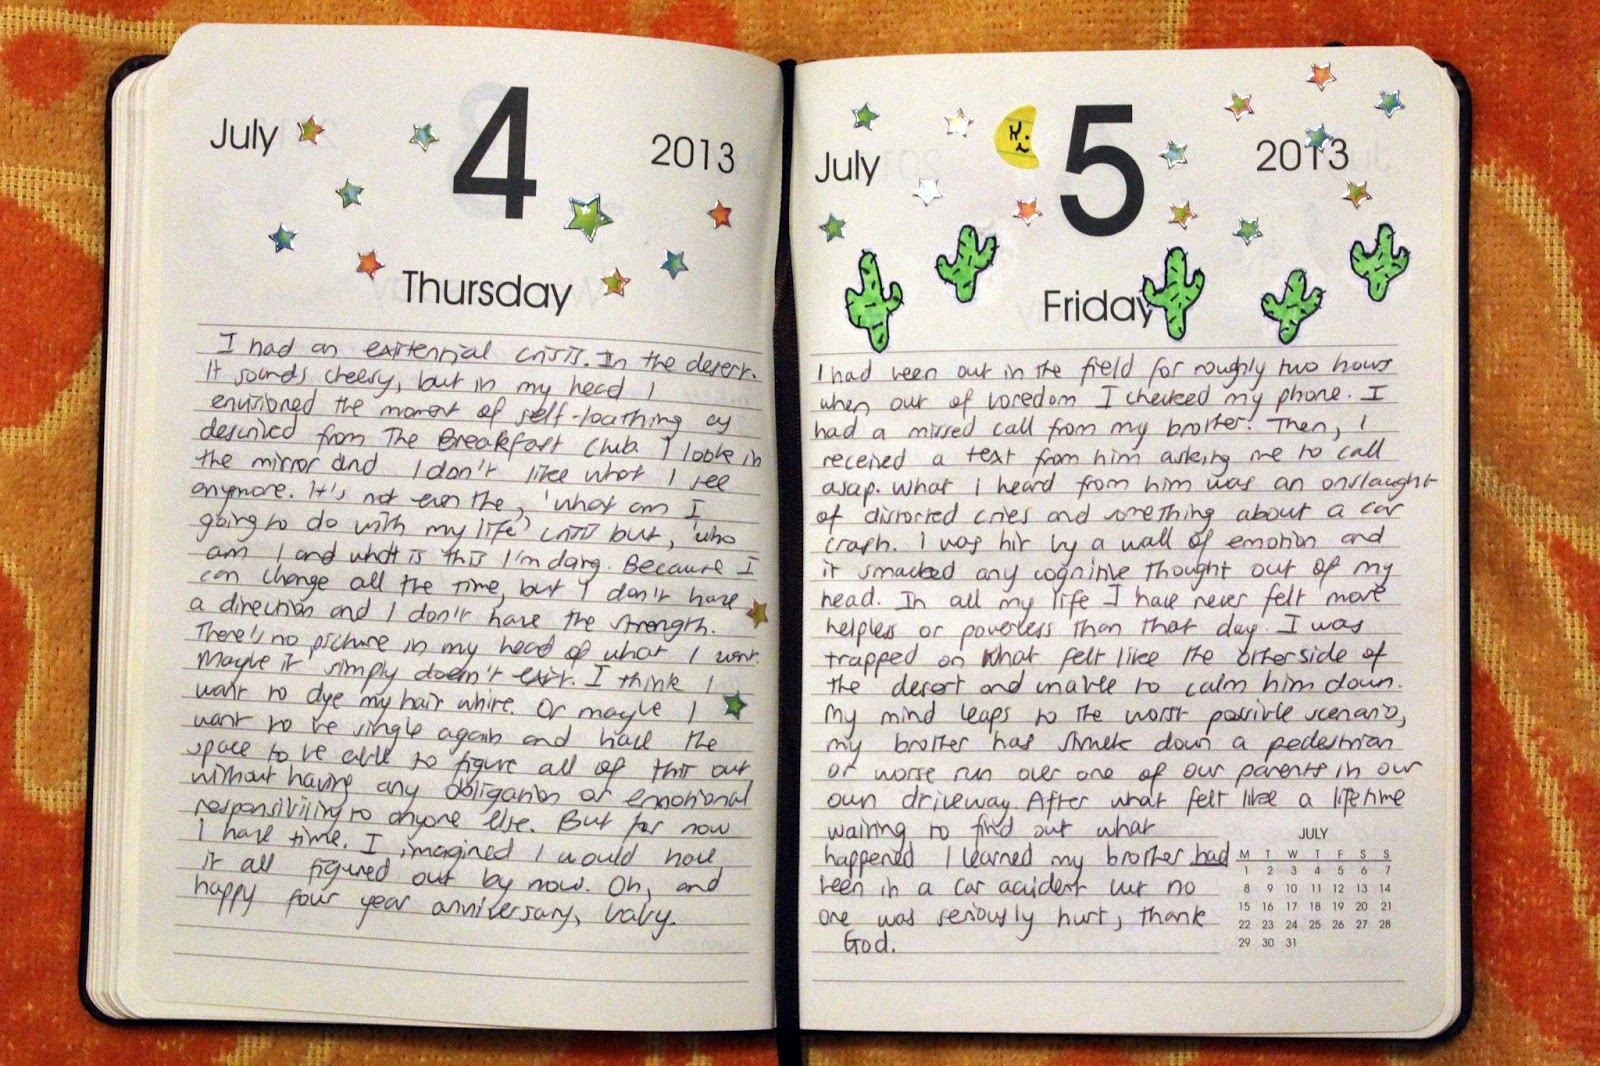 July 4 2013
Thursday
I had an existential crisis. In the desert.
It sounds cheesy, but in my head I
envisioned the moment of self-loathing as
described from The Breakfast Club. I look in
the mirror and I don't like what I see
anymore. It's not even the, 'what am I
going to do with my life' crisis but, 'who
am I and what is this I'm doing. Because I
can change all the time, but I don't have
a direction and I don't have the strength.
There's no picture in my head of what I want.
Maybe it simply doesn't exist. I think I
want to dye my hair white. Or maybe I
want to be single again and have the
space to be able to figure all of this out
without having any obligation or emotional
responsibility to anyone else. But for now
I have time. I imagined I would have
it all figured out by now. Oh, and
happy four year anniversary, baby.
July 5 2013
Friday
I had been out in the field for roughly two hours
when out of boredom I checked my phone. I
had a missed call from my brother. Then, I
received a text from him asking me to call
asap. What I heard from him was an onslaught
of distorted cries and something about a car
crash. I was hit by a wall of emotion and
it smacked any cognitive thought out of my
head. In all my life I have never felt more
helpless or powerless than that day. I was
trapped on what felt like the otherside of
the desert and unable to calm him down.
My mind leaps to the worst possible scenario,
my brother has struck down a pedestrian
or worse run over one of our parents in our
own driveway. After what felt like a lifetime
waiting to find out what
happened I learned my brother had
been in a car accident but no
one was seriously hurt, thank
God.
JULY
M T W T F S S
1 2 3 4 5 6 7
8 9 10 11 12 13 14
15 16 17 18 19 20 21
22 23 24 25 26 27 28
29 30 31